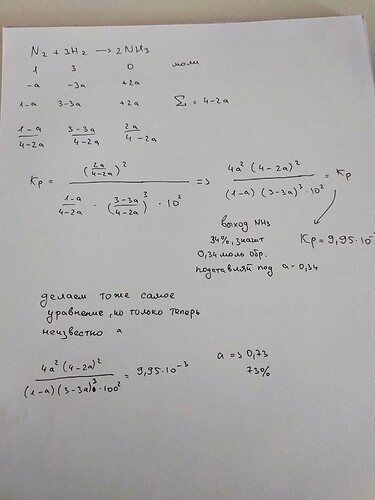 N₂ + 3H₂ → 2NH₃
1 3 0 моли
-a -3a +2a
1-a 3-3a +2a Σ = 4-2a
(1-a)/(4-2a) (3-3a)/(4-2a) 2a/(4-2a)
Kp = (2a/(4-2a))² / ((1-a)/(4-2a) · ((3-3a)/(4-2a))³ · 10²) => 4a² (4-2a)² / ((1-a) (3-3a)³ · 10²) = Kp
выход NH₃
34%, значит
0,34 моль обр.
подставляй под a = 0,34
Kp = 9,95·10⁻
делаем тоже самое
уравнение, но только теперь
неизвестно a
4a² (4-2a)² / ((1-a) (3-3a)³ · 100²) = 9,95·10⁻³
a => 0,73
73%